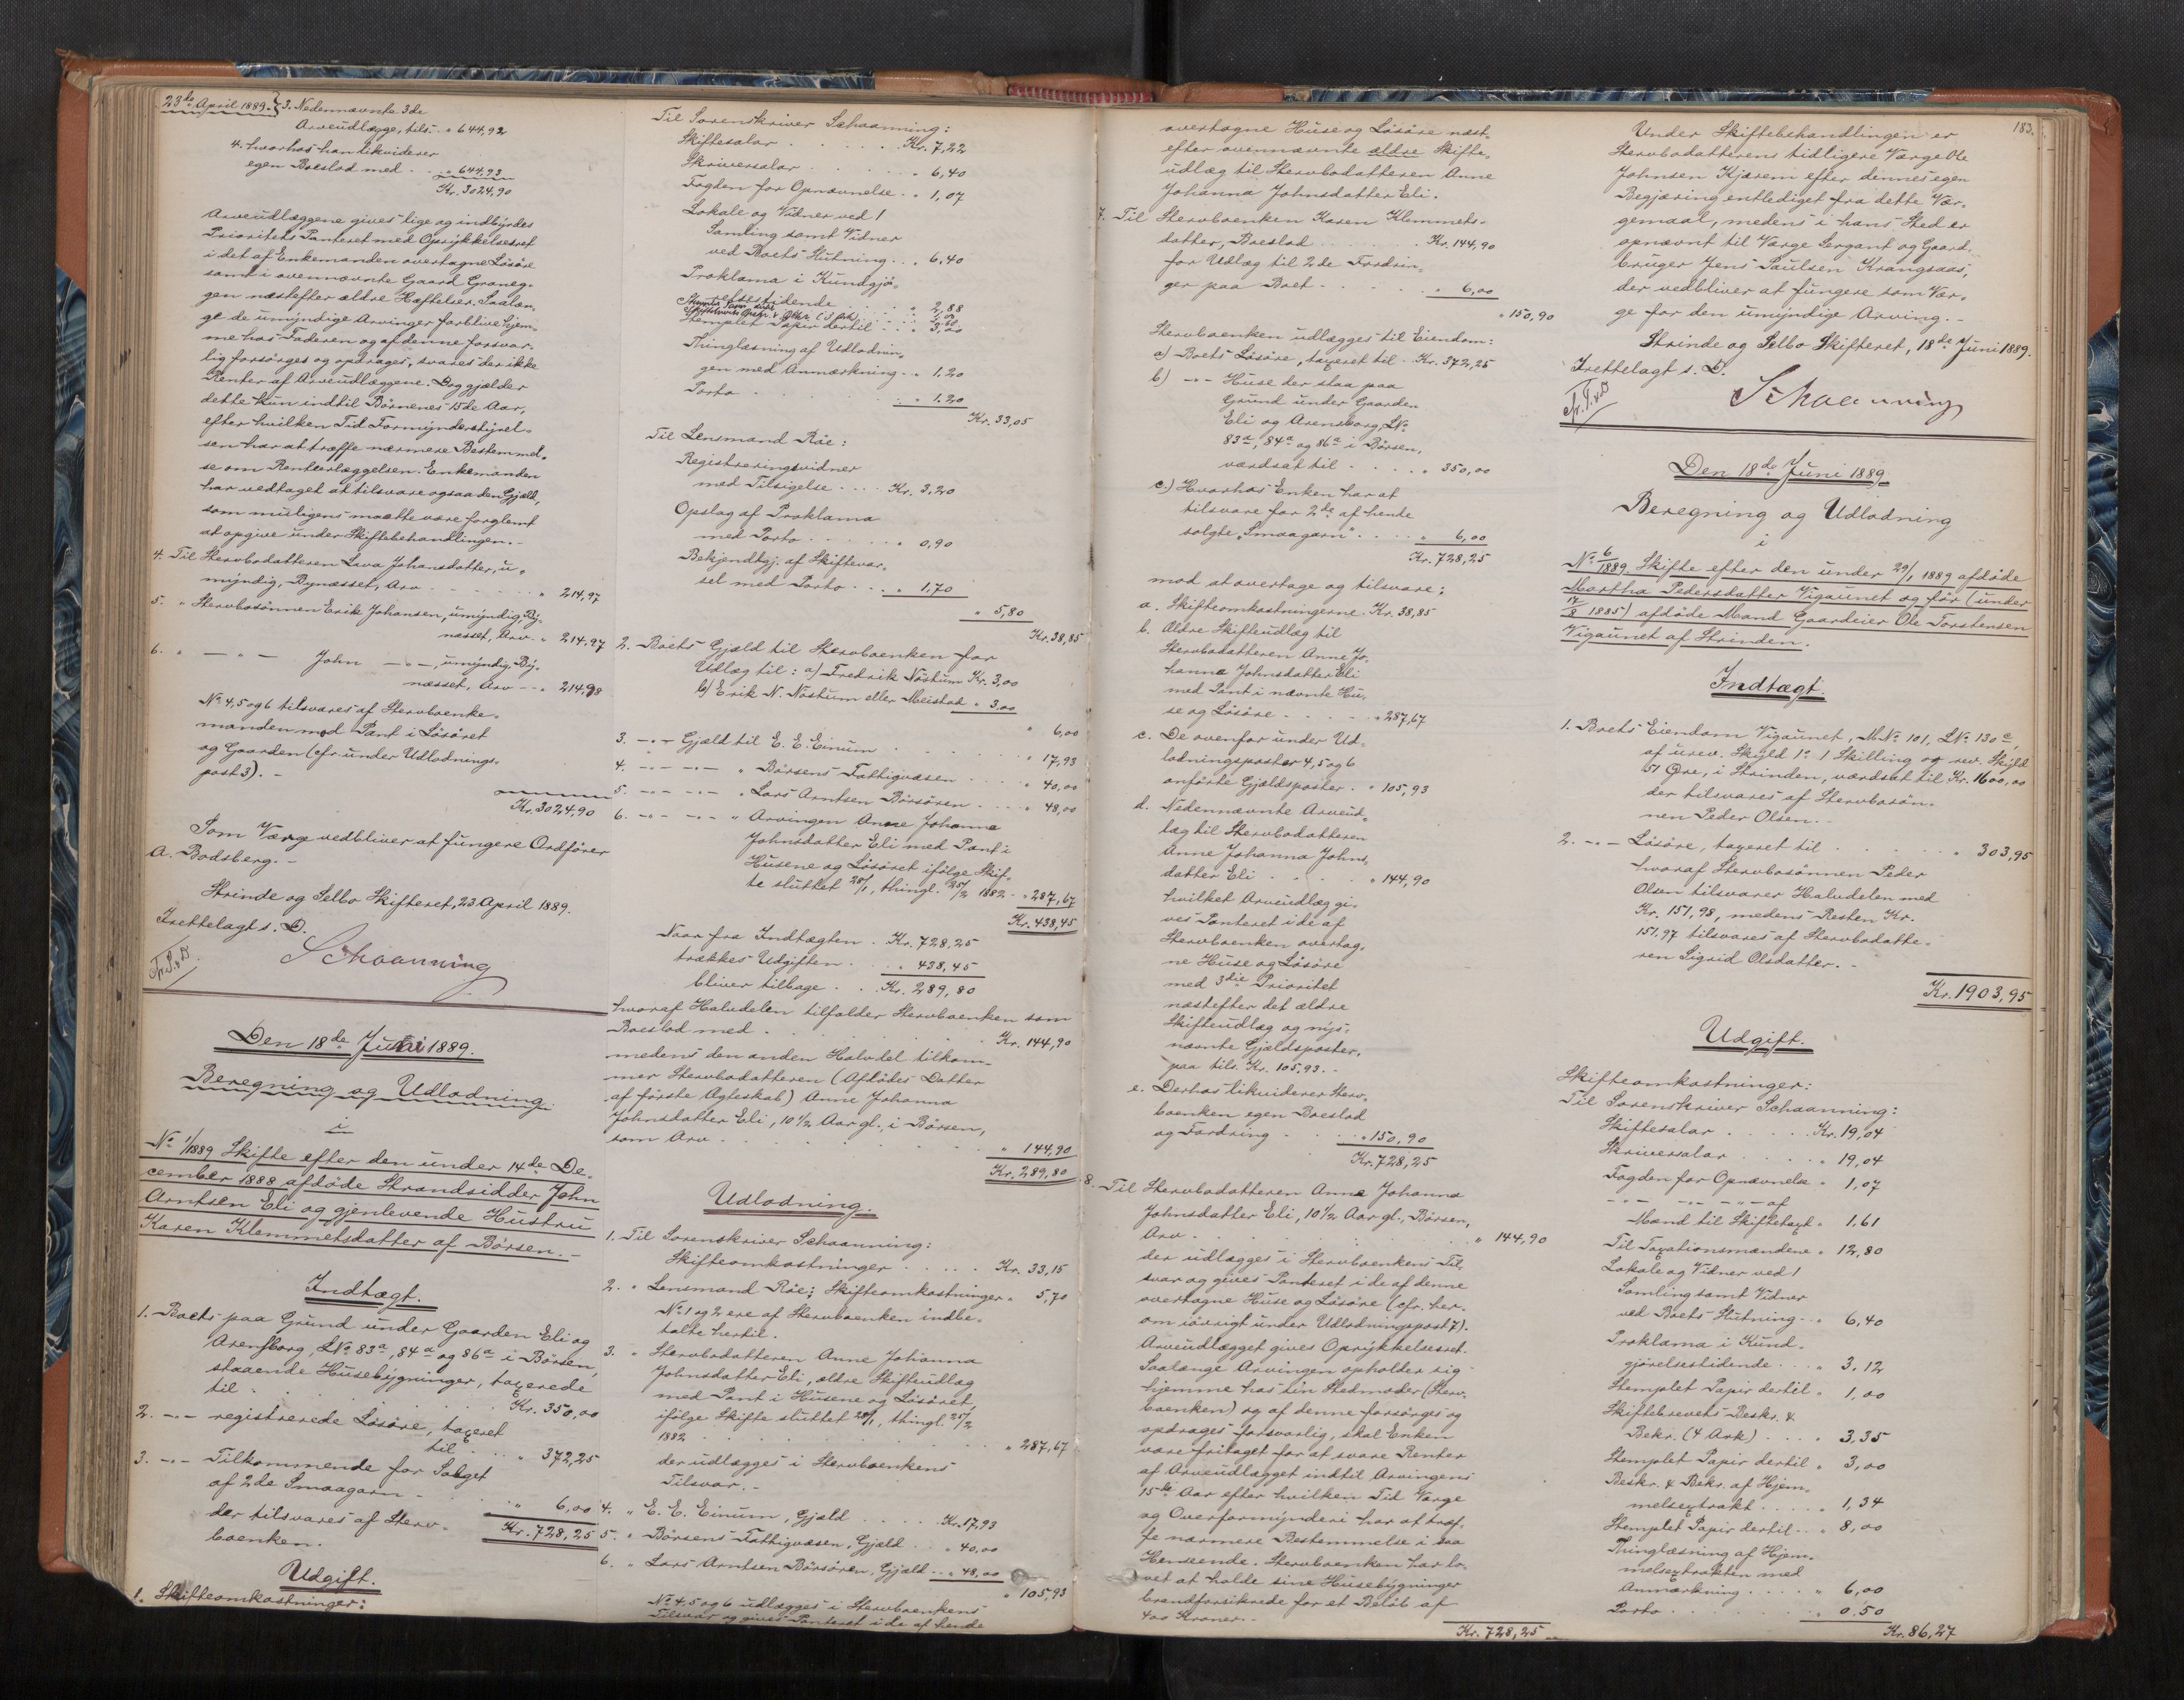 23de April 1889.
3. Nedennævnte 3de
Arveudlægge, tils. " 644,92
4. hvorhos han likviderer
egen Boeslod med . . " 644,93
Kr. 3024,90
Arveudlæggene gives lige og indbyrdes
Prioritets Panteret med Oprykkelsesret
i det af Enkemanden overtagne Løsøre
samt i ovennævnte Gaard Graneg-
gen næstefter ældre Hæftelser. Saalæn-
ge de umyndige Arvinger forblive hjem-
me hos Faderen og af denne forsvar-
lig forsørges og opdrages, svares der ikke
Renter af Arveudlæggene. Dog gjælder
dette kun indtil Børnenes 15de Aar,
efter hvilken Tid Formynderstyrel-
sen har at træffe nærmere Bestemmel-
se om Rentelæggelsen. Enkemanden
har vedtaget at tilsvare ogsaa den Gjæld,
som muligens maatte være forglemt
at opgive under Skiftebehandlingen. -
4. Til Stervbodatteren Lava Johansdatter, u-
myndig, Bynæsset, Arv . . . " 214,97
5. " Stervbosønnen Erik Johansen, umyndig, By-
næsset, Arv. " 214,97
6. " — " — John — " —, umyndig, By-
næsset, Arv — " 214,98
No 4, 5 og 6 tilsvares af Stervboenke-
manden mod Pant i Løsøret
og Gaarden (cfr. under Udlodnings-
post 3). -
Kr. 3024,90
Som Værge vedbliver at fungere Ordfører
A. Bodsberg. -
Strinde og Selbo Skifteret, 23 April 1889.
Irettelagt s. D.
Schaanning
Den 18de Juni 1889.
Beregning og Udlodning
i
No 1/1889 Skifte efter den under 14de De-
cember 1888 afdøde Strandsidder John
Arntsen Eli og gjenlevende Hustru
Karen Klemmetsdatter af Børsen. -
Indtægt.
1. Boets paa Grund under Gaarden Eli og
Arensborg, LNo 83a, 84a og 86a i Børsen,
staaende Husebygninger, taxerede
til . . . Kr. 350,00
2. -"- registrerede Løsøre, taxeret
til . . . " 372,25
3. -"- Tilkommende for Salget
af 2de Smaagarn - . . " 6,00
der tilsvares af Sterv-
boenken.
Kr. 728,25
Udgift.
1. Skifteomkostninger:
Til Sorenskriver Schaanning:
Skiftesalar . . . . . Kr. 7,22
Skriversalar . . . . . " 6,40
Fogden for Opnævnelse . . " 1,07
Lokale og Vidner ved 1
Samling samt Vidner
ved Boets Slutning . . " 6,40
Proklama i Kundgjø-
relsestidende . . . " 2,88
Stemplet Papir dertil . . . " 3,00
Thinglæsning af Udlodnin-
gen med Anmærkning . . " 1,20
Porto . . . . . " 1,20
Kr. 33,05
Til Lensmand Räe:
Registreringsvidner
med Tilsigelse . . . Kr. 3,20
Opslag af Proklama
med Porto . . . . " 0,90
Bekjendtgj. af Skiftevar-
sel med Porto . . . " 1,70
" 5,80
Kr. 38,85
2. Boets Gjæld til Stervboenken for
Udlæg til: a) Fredrik Nøstum Kr. 3,00
b) Erik N. Nøstum eller Meistad " 3,00
" 6,00
3. -"- Gjæld til E. E. Einum . . . " 17,93
4. -"- -"- " Børsens Fattigvæsen . . . " 40,00
5. -"- -"- " Lars Arntsen Børsøren . . . " 48,00
6. -"- -"- " Arvingen Anne Johanna
Johnsdatter Eli med Pant i
Husene og Løsøret ifølge Skif-
te sluttet 28/1, thingl. 25/2 1882 - " 287,67
Kr. 438,45
Naar fra Indtægten . Kr. 728,25
trækkes Udgiften . . " 438,45
bliver tilbage . . Kr. 289,80
hvoraf Halvdelen tilfalder Stervboenken som
Boeslod med . . . . . Kr. 144,90
medens den anden Halvdel tilkom-
mer Stervbodatteren (Afdødes Datter
af første Ægteskab) Anne Johanna
Johnsdatter Eli, 10 1/2 Aar gl. i Børsen,
som Arv . . . . . " 144,90
Kr. 289,80
Udlodning.
1. Til Sorenskriver Schaanning:
Skifteomkostninger . . . . . Kr. 33,15
2. " Lensmand Räe; Skifteomkostninger " 5,70
No 1 og 2 ere af Stervboenken indbe-
talte hertil.
3. " Stervbodatteren Anne Johanna
Johnsdatter Eli, ældre Skifteudlæg
med Pant i Husene og Løsøret,
ifølge Skifte sluttet 28/1, thingl. 25/2
1882 . . . . . " 287,67
der udlægges i Stervboenkens
Tilsvar. -
4. " E. E. Einum, Gjæld . . . . Kr. 17,93
5. " Børsens Fattigvæsen, Gjæld . . . " 40,00
6. " Lars Arntsen Børsøren, Gjæld . . . " 48,00
" 105,93
No 4, 5 og 6 udlægges i Stervboenkens
Tilsvar og gives Panteret i de af hende
overtagne Huse og Løsøre næst-
efter ovennævnte ældre Skifte-
udlæg til Stervbodatteren Anne
Johanna Johnsdatter Eli.
7. Til Stervboenken Karen Klemmets-
datter, Boeslod . . . . Kr. 144,90
for Udlæg til 2de Fordrin-
ger paa Boet . . . . . " 6,00
" 150,90
Stervboenken udlægges til Eiendom:
a) Boets Løsøre, taxeret til . Kr. 372,25
b) -"- Huse der staa paa
Grund under Gaarden
Eli og Arensborg, LNo
83a, 84a og 86a i Børsen,
værdsat til . . . . . " 350,00
c.) Hvorhos Enken har at
tilsvare for 2de af hende
solgte "Smaagarn" . . . " 6,00
Kr. 728,25
mod at overtage og tilsvare:
a. Skifteomkostningerne . Kr. 38,85
b. Ældre Skifteudlæg til
Stervbodatteren Anne Jo-
hanna Johnsdatter Eli
med Pant i nævnte Hu-
se og Løsøre . . . . " 287,67
c. De ovenfor under Ud-
lodningsposter 4, 5 og 6
anførte Gjældsposter . " 105,93
d. Nedennævnte Arveud-
læg til Stervbodatteren
Anne Johanna Johns-
datter Eli . . . . " 144,90
hvilket Arveudlæg gi-
ves Panteret i de af
Stervboenken overtag-
ne Huse og Løsøre
med 3die Prioritet
næstefter det ældre
Skifteudlæg og nys-
nævnte Gjældsposter,
paa tils. Kr. 105,93. -
e. Derhos likviderer Sterv-
boenken egen Boeslod
og Fordring . . . . " 150,90
Kr. 728,25
8. Til Stervbodatteren Anna Johanna
Johnsdatter Eli, 10 1/2 Aar gl., Børsen,
Arv . . . . . " 144,90
der udlægges i Stervboenkens Til-
svar og gives Panteret i de af denne
overtagne Huse og Løsøre (cfr. her-
om iøvrigt under Udlodningspost 7).
Arveudlægget gives Oprykkelsesret.
Saalænge Arvingen opholder sig
hjemme hos sin Stedmoder (Sterv-
boenken) og af denne forsørges og
opdrages forsvarlig, skal Enken
være fritaget for at svare Renter
af Arveudlægget indtil Arvingens
15de Aar efter hvilken Tid Værge
og Overformynderi har at træf-
fe nærmere Bestemmelse i saa
Henseende. Stervboenken har lo-
vet at holde sine Husebygninger
brandforsikrede for et Beløb af
400 Kroner. -
Kr. 728,25
183.
Under Skiftebehandlingen er
Stervbodatterens tidligere Værge Ole
Johnsen Kjærem efter dennes egen
Begjæring entlediget fra dette Vær-
gemaal, medens i hans Sted er
opnævnt til Værge Sergant og Gaard-
bruger Jens Paulsen Krangsaas,
der vedbliver at fungere som Vær-
ge for den umyndige Arving. -
Strinde og Selbo Skifteret, 18de Juni 1889.
Irettelagt s. D.
Schaanning
Den 18de Juni 1889.
Beregning og Udlodning
i
No 6/1889. Skifte efter den under 29/1 1889 afdøde
Martha Pedersdatter Vigaunet og før (under
17/8 1885) afdøde Mand Gaardeier Ole Torstensen
Vigaunet af Strinden.
Indtægt.
1. Boets Eiendom Vigaunet, MNo 101, LNo 130c,
af urev. Skyld 1o 1 Skilling og rev. Skyld
51 Øre, i Strinden, værdsat til Kr. 1600,00
der tilsvares af Stervbosøn-
nen Peder Olsen. -
2. -"- Løsøre, taxeret til . . . . . " 303,95
hvoraf Stervbosønnen Peder
Olsen tilsvarer Halvdelen med
Kr. 151,98, medens Resten Kr.
151,97 tilsvares af Stervbodatte-
ren Sigrid Olsdatter. -
Kr. 1903,95
Udgift.
Skifteomkostninger:
Til Sorenskriver Schaanning:
Skiftesalar . . . . . Kr. 19,04
Skriversalar . . . . . " 19,04
Fogden for Opnævnelse " 1,07
-"- -"- -"- af
Mænd til Skiftetaxt " 1,61
Til Taxationsmændene " 12,80
Lokale og Vidner ved 1
Samling samt Vidner
ved Boets Slutning . . " 6,40
Proklama i Kund-
gjørelsestidende . . . " 3,12
Stemplet Papir dertil " 1,00
Skiftebrevets Beskr. &
Bekr. (4 Ark) . . . . " 3,35
Stemplet Papir dertil " 3,00
Beskr. & Bekr. af Hjem-
melsextrakt . . . . . " 1,34
Stemplet Papir dertil . . " 8,00
Thinglæsning af Hjem-
melsextrakten med
Anmærkning . . . . " 6,00
Porto . . . . . " 0,50
Kr. 86,27